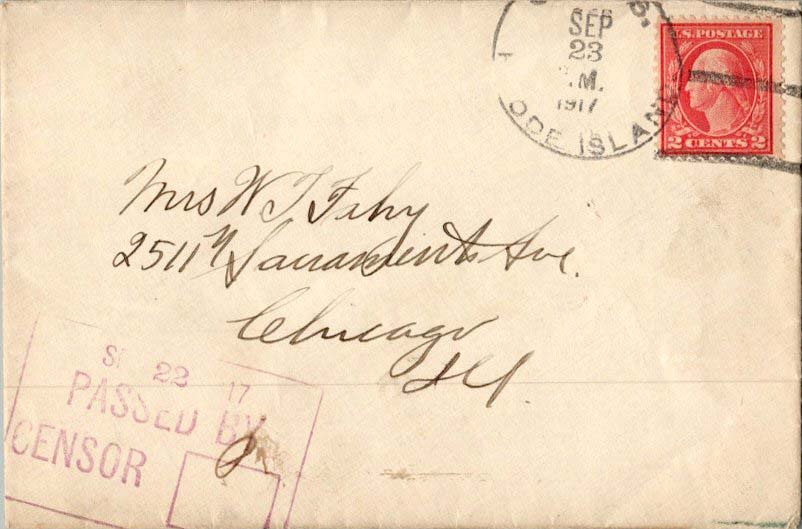 S.
SEP
23
.M.
1917
ODE ISLAND
U.S. POSTAGE
2 CENTS 2
Mrs W J
2511 N Sacramento Ave.
Chicago
Ill.
SE 22 17
PASSED BY
CENSOR